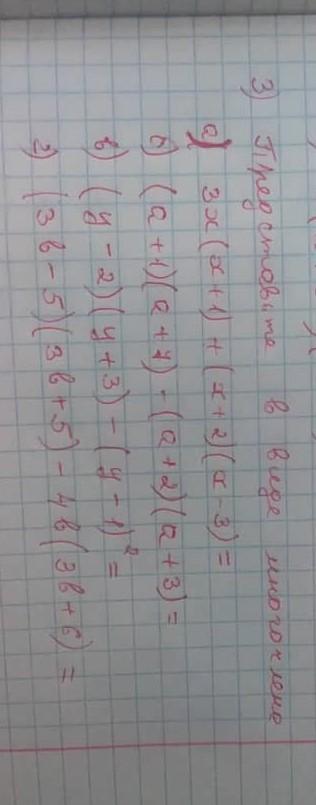 3) Представьте в виде многочлена
а) 3x(x+1)+(x+2)(x-3)=
б) (a+1)(a+4)-(a+2)(a+3)=
в) (y-2)(y+3)-(y-1)²=
г) (3b-5)(3b+5)-4b(3b+6)=